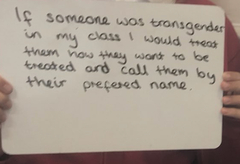 If someone was transgender
in my class I would treat
them how they want to be
treated and call them by
their prefered name.